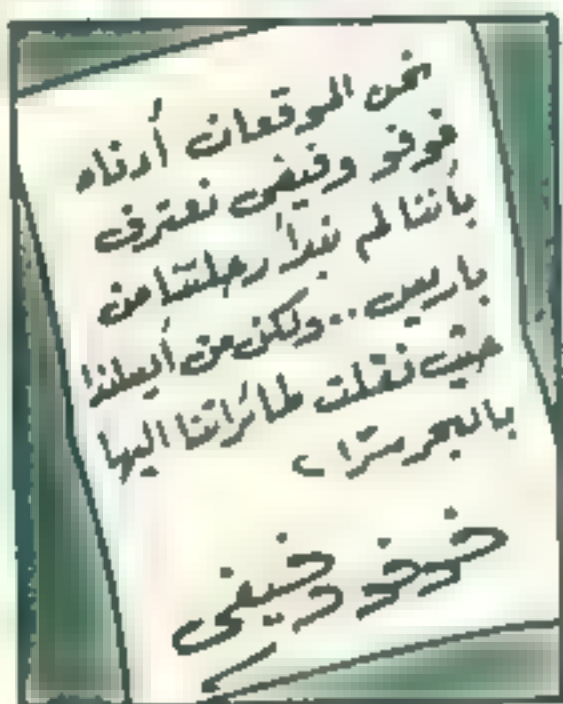 نحن الموقعان أدناه
فوفو وفيفى نعترف
بأننا لم نبدأ رحلتنا من
باريس .. ولكن من أيسلندا
حيث نقلت طائراتنا اليها
بالبحر سرًا
فوفو وفيفى